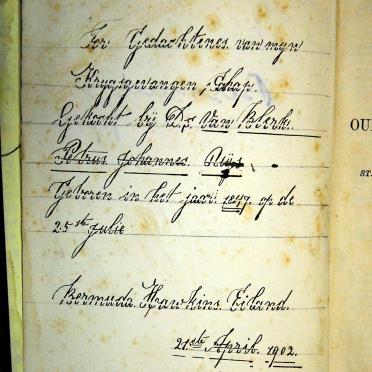 Ter Gedachtenes van myn
Krygsgevangen, Schap.
Gekocht bij Ds. Van Blerk.
Petrus Johannes Nüys
Geboren in het jaar 1847 op de
25ste Julie
Bermuda. Hawkins. Eiland.
21ste April. 1902.
OU
ST